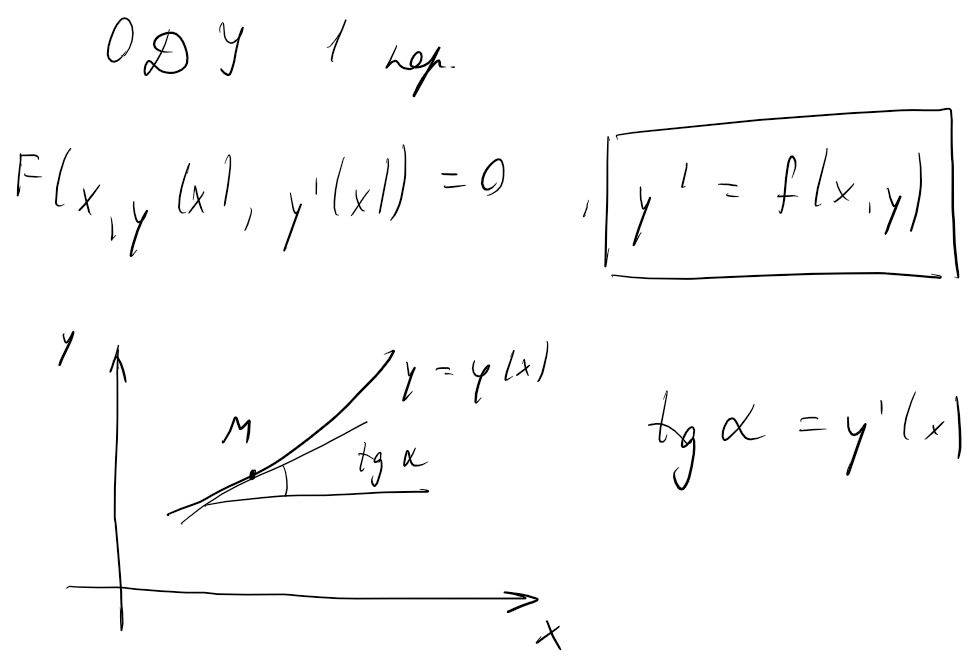 ОДУ 1 пор.
F(x, y(x), y'(x)) = 0 , y' = f(x, y)
y
y = y(x)
M
tg α
tg α = y'(x)
x